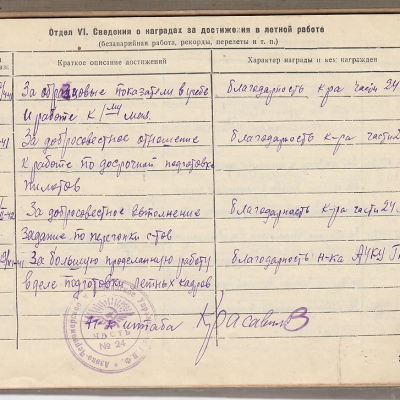 Отдел VI. Сведения о наградах за достижения в летной работе
(безаварийная работа, рекорды, перелеты и т. п.)
Краткое описание достижений
Характер награды и кем награжден
За образцовые показатели в учебе
и работе к 1му мая.
Благодарность к-ра части 24
За добросовестное отношение
к работе по досрочной подготовке
пилотов
Благодарность к-ра части 2
За добросовестное выполнение
задание по перегонки с-тов
Благодарность к-ра части 24
За большую проделанную работу
в деле подготовки летных кадров
Благодарность н-ка
штаба Красавин
Азово-Черноморское
ЧАСТЬ
№ 24